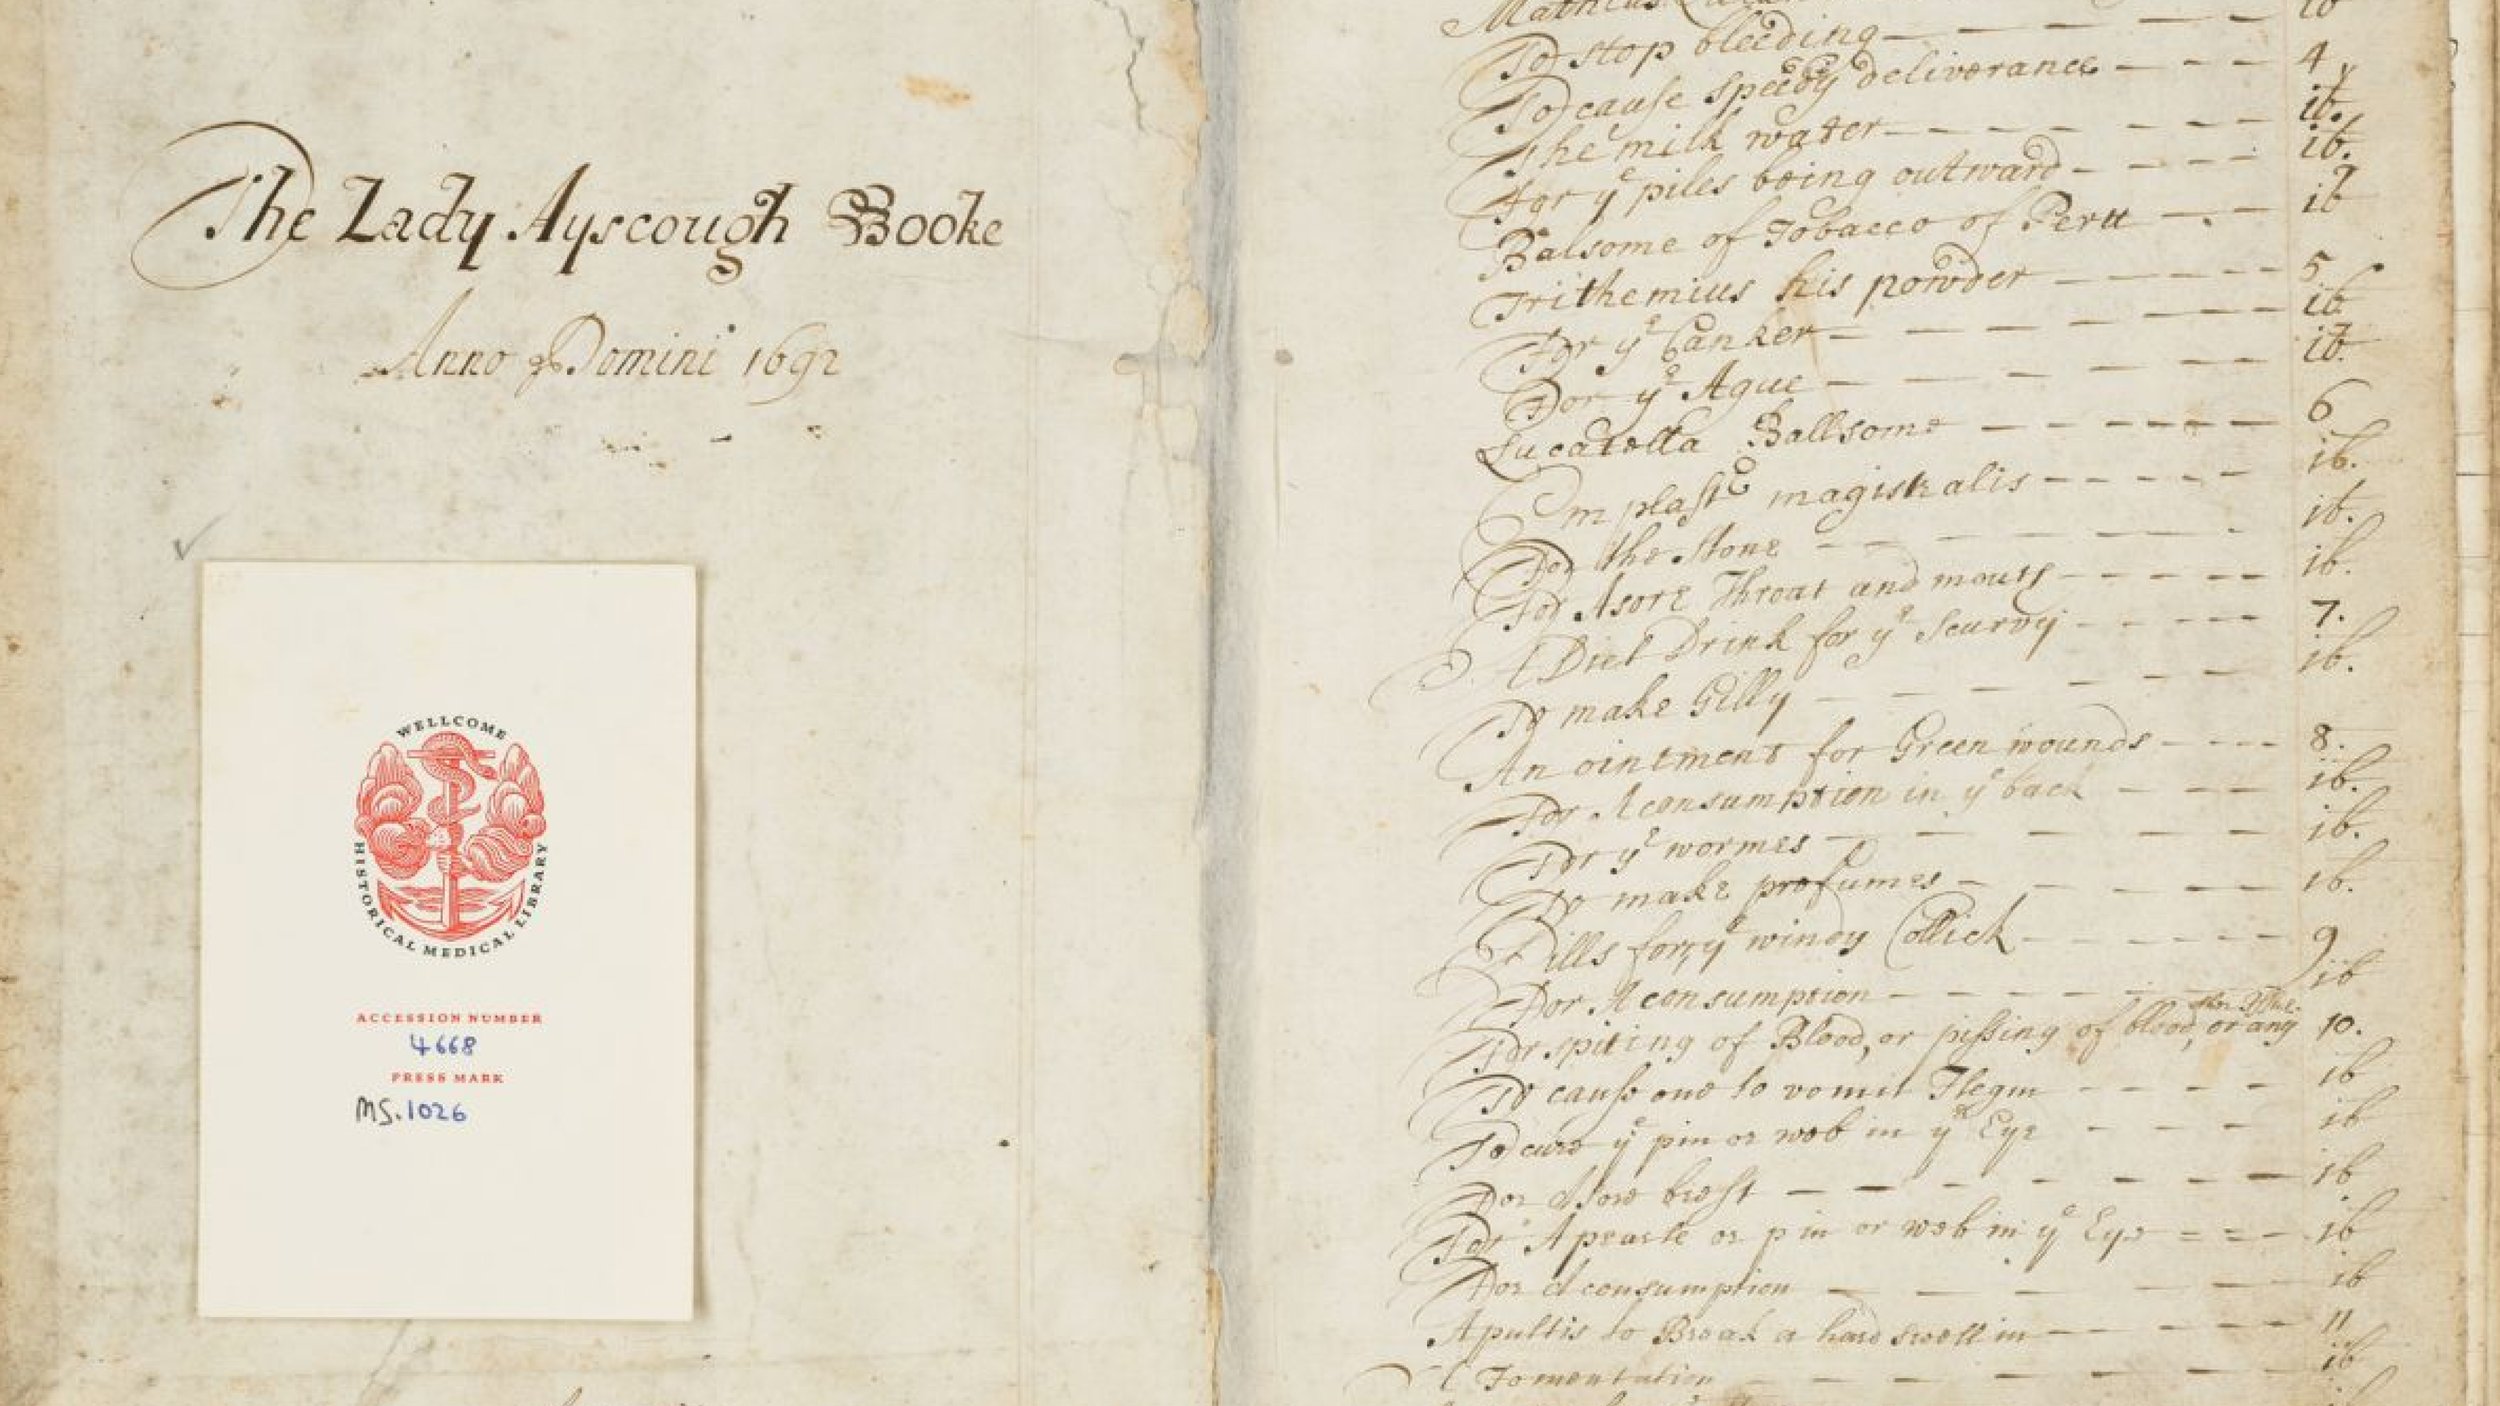 The Lady Ayscough Booke
Anno Domini 1692
WELLCOME
HISTORICAL MEDICAL LIBRARY
ACCESSION NUMBER
4668
PRESS MARK
MS.1026
To stop bleeding 4
To cause speedy deliverance ib.
The milk water ib.
For yᵉ piles being outward ib
Balsome of Tobacco of Peru
Trithemius his powder 5
For yᵉ Canker ib
For yᵉ Ague ib.
Lucatella Ballsome 6
Emplastr magistralis ib.
For the Stone ib.
For A sore Throat and mouth ib.
A Diet Drink for yᵉ Scurvy 7.
To make Gilly ib.
An ointment for Green wounds 8.
For A consumption in yᵉ back ib.
For yᵉ wormes ib.
To make perfumes ib.
Pills for yᵉ windy Collick 9
For A consumption ib
For spiting of Blood, or pissing of blood, or any 10.
To cause one to vomit Flegm ib
To cure yᵉ pin or web in yᵉ Eye ib
For A sore brest ib
For A pearle or pin or web in yᵉ Eye ib
For A consumption ib
A pultis to Break a hard swellin 11
A Fomentation ib